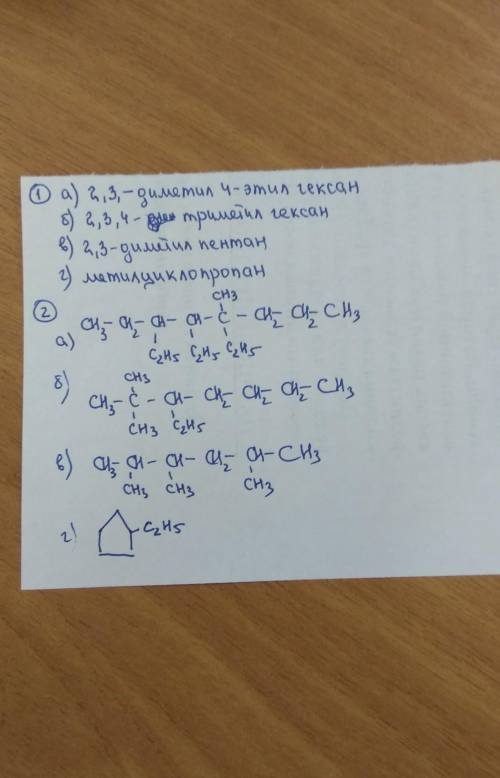 ① а) 2,3,-диметил 4-этил гексан
б) 2,3,4- триметил гексан
в) 2,3-диметил пентан
г) метилциклопропан
②
CH3
а) CH3-CH2-CH-CH-C-CH2-CH2-CH3
C2H5 C2H5 C2H5
б) CH3
CH3-C-CH-CH2-CH2-CH2-CH3
CH3 C2H5
в) CH3-CH-CH-CH2-CH-CH3
CH3 CH3 CH3
г) -C2H5